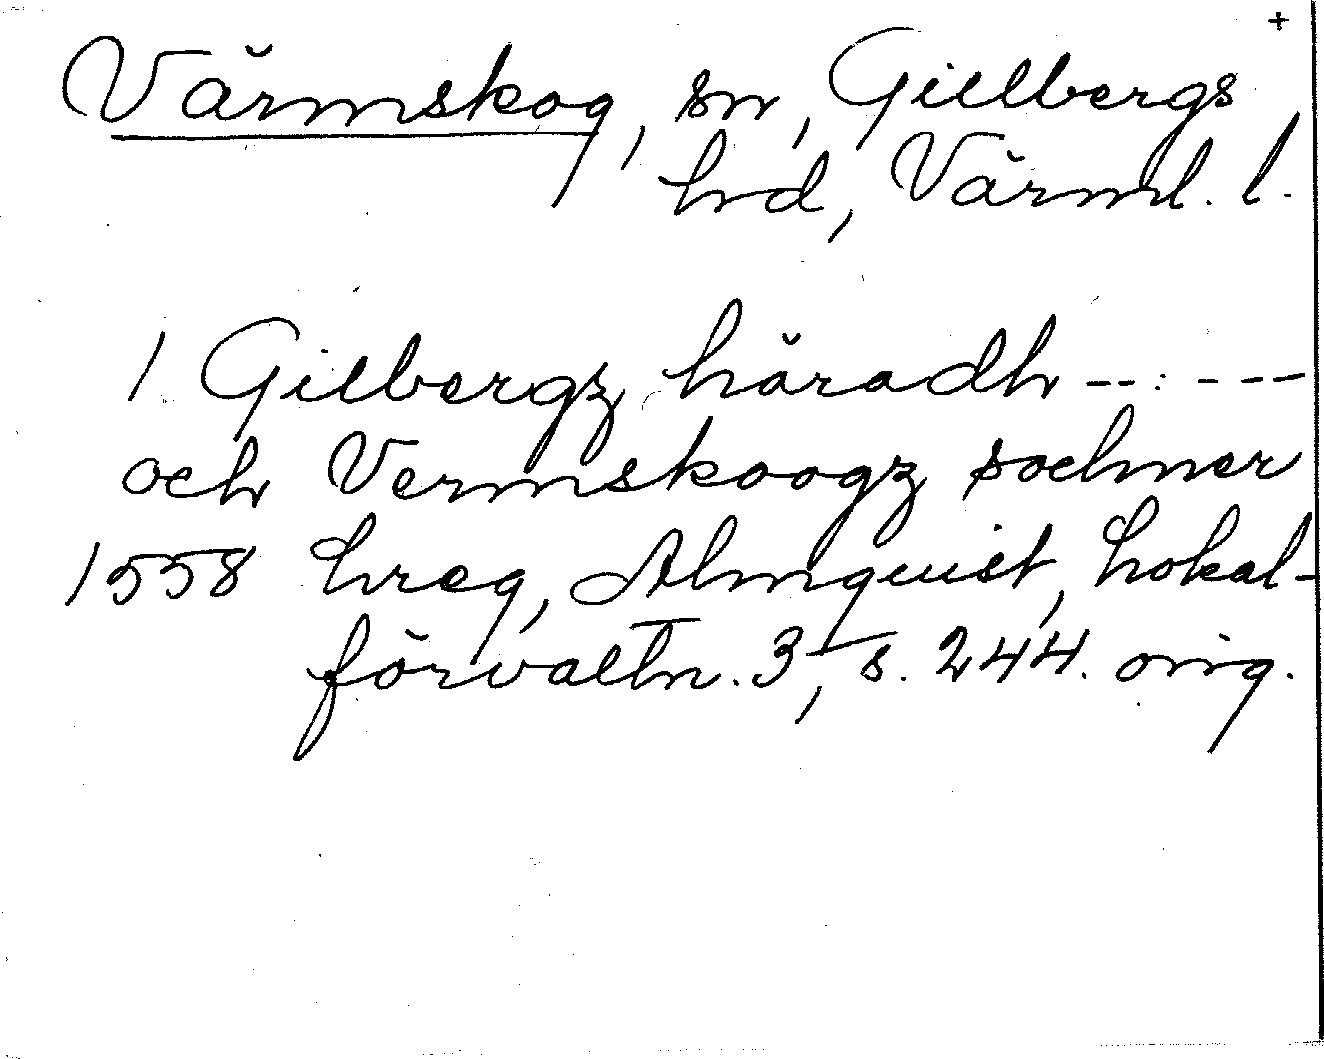 +
Värmskog, sn, Gillbergs
hd, Värml. l.
I Gilbergz häradh -- : - - --
och Vermskoogz sochner
1558 hreg, Almquist, Lokal-
förvaltn. 3, s. 244. orig.